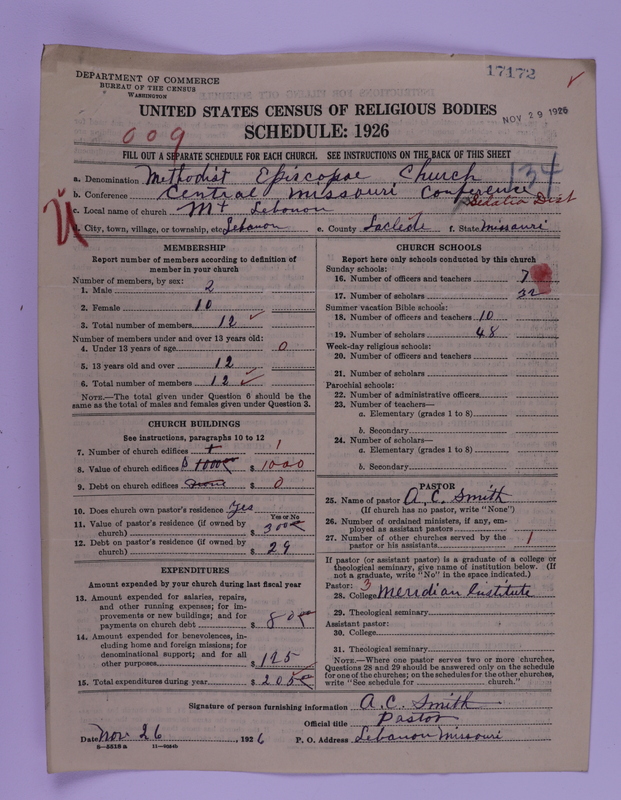 17172
DEPARTMENT OF COMMERCE
BUREAU OF THE CENSUS
WASHINGTON
NOV 29 1926
UNITED STATES CENSUS OF RELIGIOUS BODIES
SCHEDULE: 1926
009
FILL OUT A SEPARATE SCHEDULE FOR EACH CHURCH. SEE INSTRUCTIONS ON THE BACK OF THIS SHEET
134
a. Denomination Methodist Episcopae Church
b. Conference Central Missouri Conference
c. Local name of church Mt Lebanon
Sedalia Dist
d. City, town, village, or township, etc. Lebanon e. County Laclede f. State Missouri
MEMBERSHIP
Report number of members according to definition of
member in your church
Number of members, by sex:
1. Male 2
2. Female 10
3. Total number of members 12
Number of members under and over 13 years old:
4. Under 13 years of age 0
5. 13 years old and over 12
6. Total number of members 12
NOTE.—The total given under Question 6 should be the
same as the total of males and females given under Question 3.
CHURCH BUILDINGS
See instructions, paragraphs 10 to 12
7. Number of church edifices 1
8. Value of church edifices $ 1000 1000
9. Debt on church edifices None $ 0
10. Does church own pastor's residence? Yes
Yes or No
11. Value of pastor's residence (if owned by
church) $ 300
12. Debt on pastor's residence (if owned by
church) $ 29
EXPENDITURES
Amount expended by your church during last fiscal year
13. Amount expended for salaries, repairs,
and other running expenses; for im-
provements or new buildings; and for
payments on church debt $ 80
14. Amount expended for benevolences, in-
cluding home and foreign missions; for
denominational support; and for all
other purposes $ 125
15. Total expenditures during year $ 205
CHURCH SCHOOLS
Report here only schools conducted by this church
Sunday schools:
16. Number of officers and teachers 7
17. Number of scholars 32
Summer vacation Bible schools:
18. Number of officers and teachers 10
19. Number of scholars 48
Week-day religious schools:
20. Number of officers and teachers
21. Number of scholars
Parochial schools:
22. Number of administrative officers
23. Number of teachers—
a. Elementary (grades 1 to 8)
b. Secondary
24. Number of scholars—
a. Elementary (grades 1 to 8)
b. Secondary
PASTOR
25. Name of pastor A. C. Smith
(If church has no pastor, write "None")
26. Number of ordained ministers, if any, em-
ployed as assistant pastors
27. Number of other churches served by the
pastor or his assistants 1
If pastor (or assistant pastor) is a graduate of a college or
theological seminary, give name of institution below. (If
not a graduate, write "No" in the space indicated.)
Pastor: 3
28. College Meridian Institute
29. Theological seminary
Assistant pastor:
30. College
31. Theological seminary
NOTE.—Where one pastor serves two or more churches,
Questions 28 and 29 should be answered only on the schedule
for one of the churches; on the schedules for the other churches,
write "See schedule for church."
Signature of person furnishing information A. C. Smith
Official title Pastor
Date Nov 26, 1926 P. O. Address Lebanon Missouri
8—5518 a